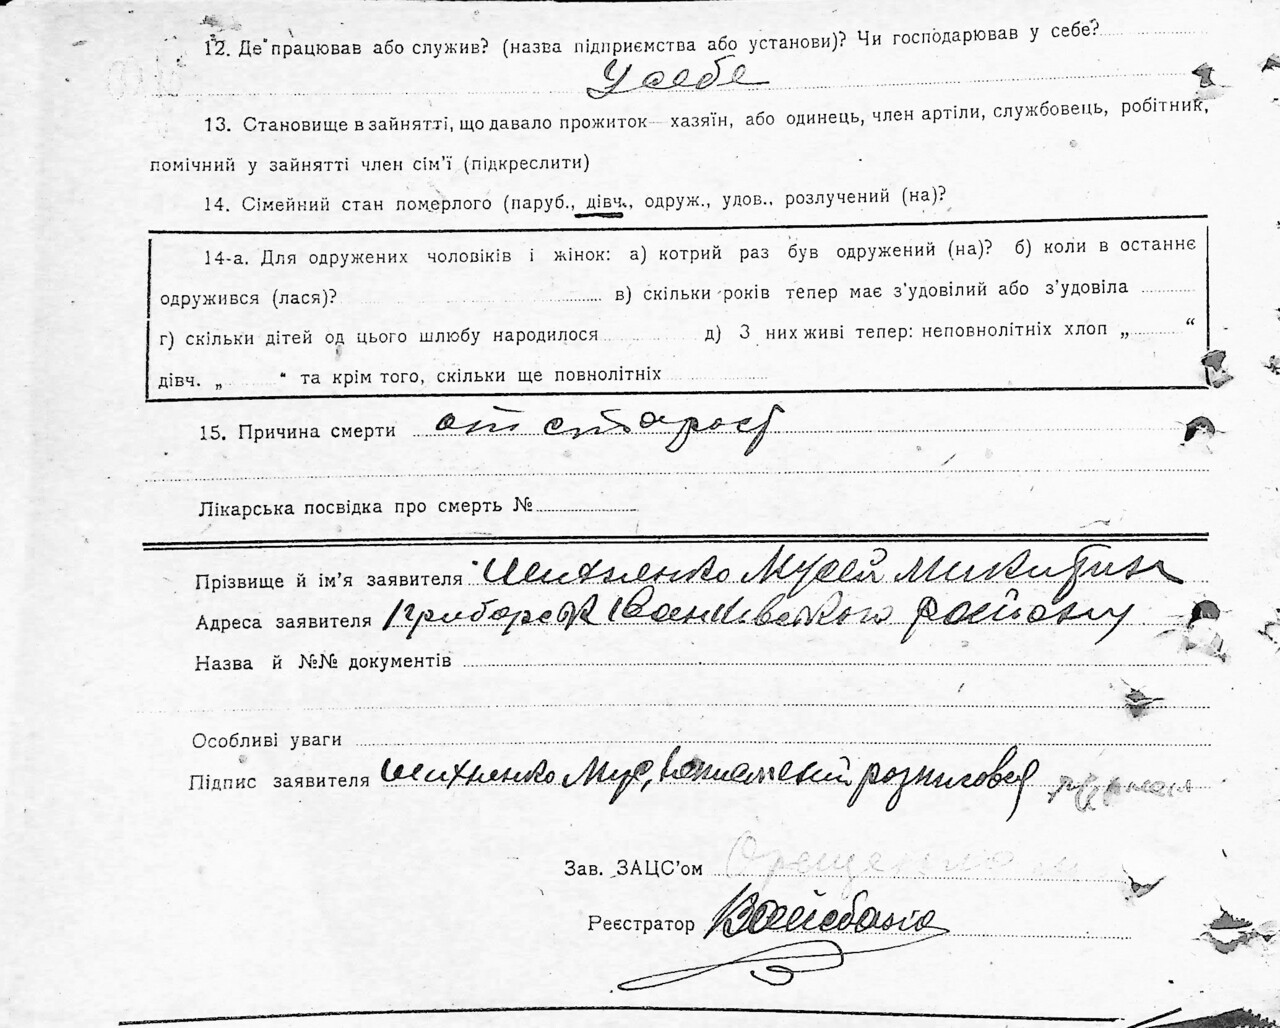 12. Де працював або служив? (назва підприємства або установи)? Чи господарював у себе?
У себе
13. Становище в зайнятті, що давало прожиток — хазяїн, або одинець, член артіли, службовець, робітник,
помічний у зайнятті член сім'ї (підкреслити)
14. Сімейний стан померлого (паруб., дівч., одруж., удов., розлучений (на)?
14-а. Для одружених чоловіків і жінок: а) котрий раз був одружений (на)? б) коли в останнє
одружився (лася)? в) скільки років тепер має з'удовілий або з'удовіла
г) скільки дітей од цього шлюбу народилося д) З них живі тепер: неповнолітніх хлоп „ “
дівч. „ “ та крім того, скільки ще повнолітніх
15. Причина смерти от старост
Лікарська посвідка про смерть №
Прізвище й ім'я заявителя Михненко Мусей Микитин
Адреса заявителя Приборськ Іванківського району
Назва й №№ документів
Особливі уваги
Підпис заявителя Михненко Мус, розписовся
Зав. ЗАЦС'ом
Реєстратор